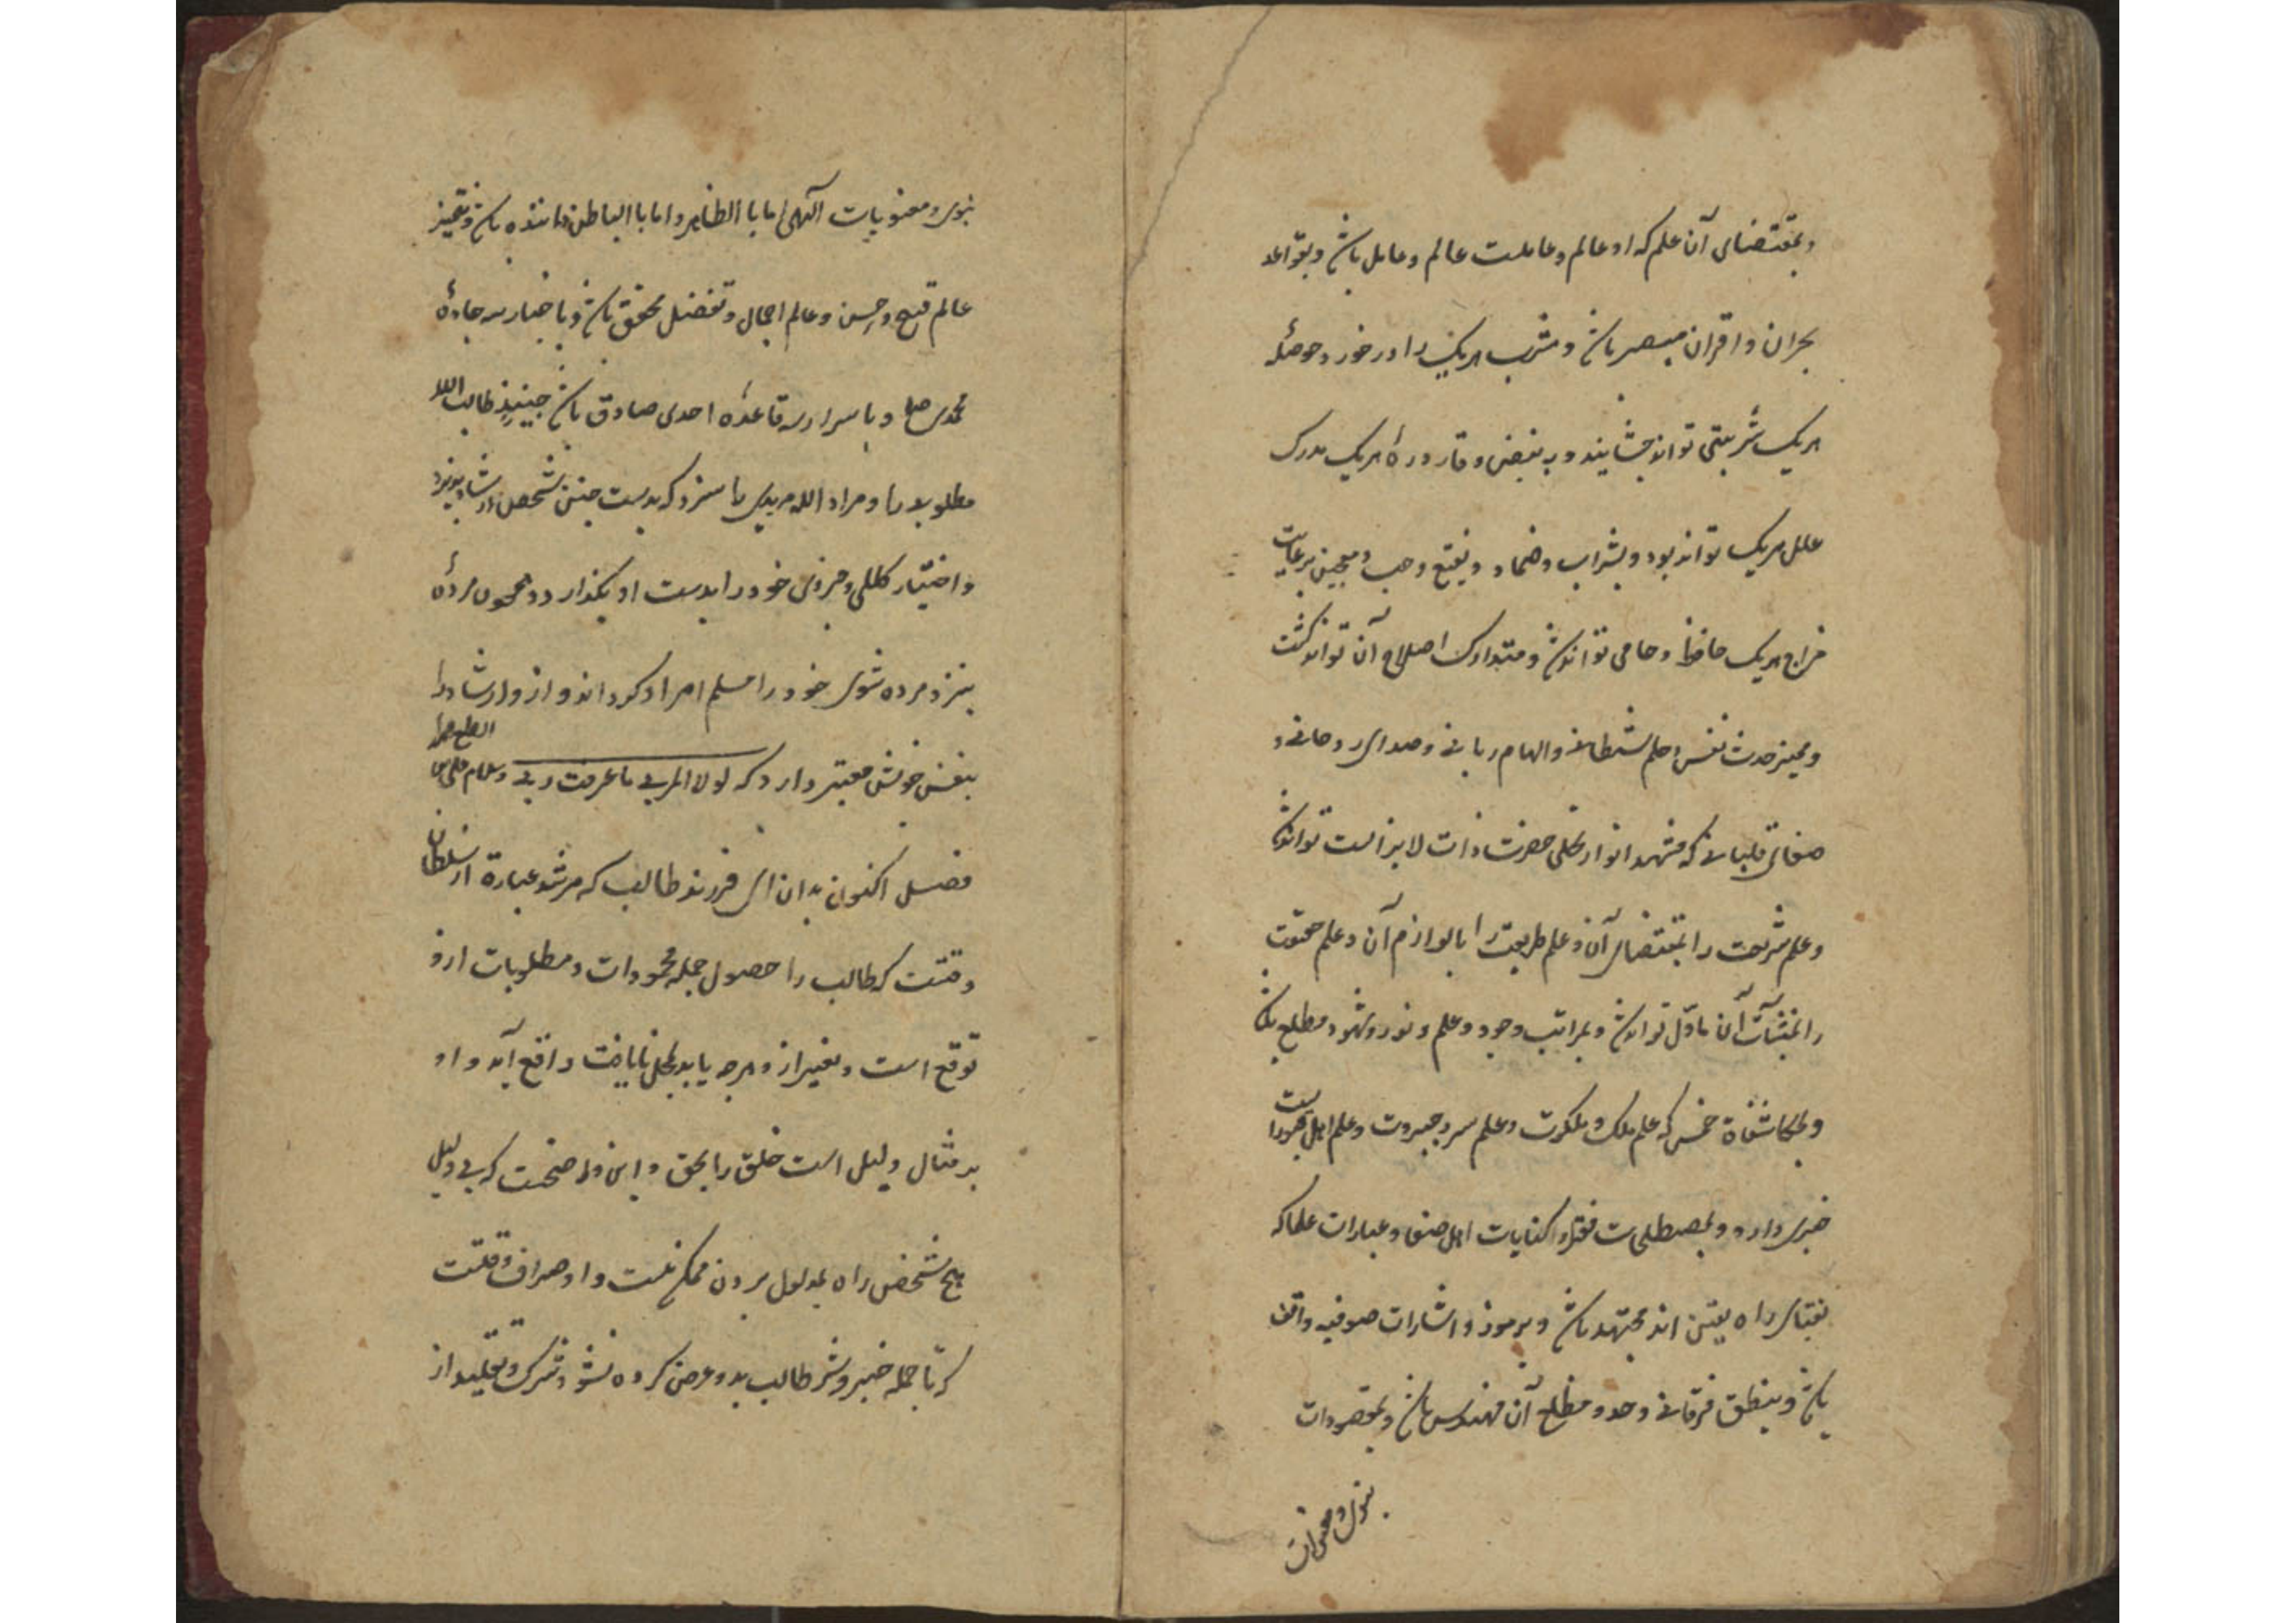 وبمقتضای آن علم که او عالم و عاملست عالم و عامل باش و بقواعد
بحران و اقران مبصر باش و مشرب هریک را در خور و حوصلهٔ
هریک شربتی تواند چشانیند و به نبض و قارورهٔ هریک مدرک
علل هریک تواند بود و بشراب و ضماد و نقیع و حب و معجین برعایت
مزاج هریک حافظ و حامی تواند باش و متدارک اصلاح آن تواند گشت
وممیز حدث نفس و حلم شیطانی والهام ربانی و صدای روحانی و
صفای قلبانی که مشهد انوار تجلی حضرت ذات لایزالست تواند باش
وعلم شریعت را بمقتضای آن وعلم طریقت را بالوازم آن وعلم حقیقت
را آن ماول تواند باش و بمراتب وجود وعلم و نور وشهود مطلع باش
وبمکاشفاة خمس که علم ملک و ملکوت وعلم سر و جبروت وعلم اهل
خبری دارد و بمصطلحات فقرا و کنایات اهل صفا و عبارات علما که
نقبای راه یقین اند مجتهد باش و برموز و اشارات صوفیه واقف
باش و بنطق فرقانی وحد و مطلع آن مهندس باش و بمقصودات
نبوی و معنویات
نبوی و معنویات آلهی اما با الظاهر و اما با الباطن داننده باش و بتمیز
عالم قبح و حسن و عالم اجمال و تفصیل محقق باش و باخبار سر جادهٔ
محمدی صلعم و باسرار سر قاعدهٔ احدی صادق باش چنین طالب الله
مطلوب ما و مراد الله مرید ما سزد که بدست چنین شخص ارشاد پوید
واختیار کللی و جزوی خود را بدست او بگذارد و همچون مردهٔ
بنزد مرده شوی خود را مسلم امر او گرداند و ازو ارشاد را
بنفس خویش معتبر دارد که لولا المربی ما عرفت ربی
فصل اکنون بدان ای فرزند طالب که مرشد عبارة از سلطان
وقتست که طالب را حصول جمله محمودات و مطلوبات ازو
توقع است و بغیر از و هرچه یابد بمحل نایافت واقع آید و او
بر مثال دلیل است خلق را بحق و این واضحست که بی دلیل
هیچ شخص راه بمدلول بردن ممکن نیست و او صراف وقتست
که تا جمله خیر و شر طالب بدو عرض کرده نشود شرک و تقلید از